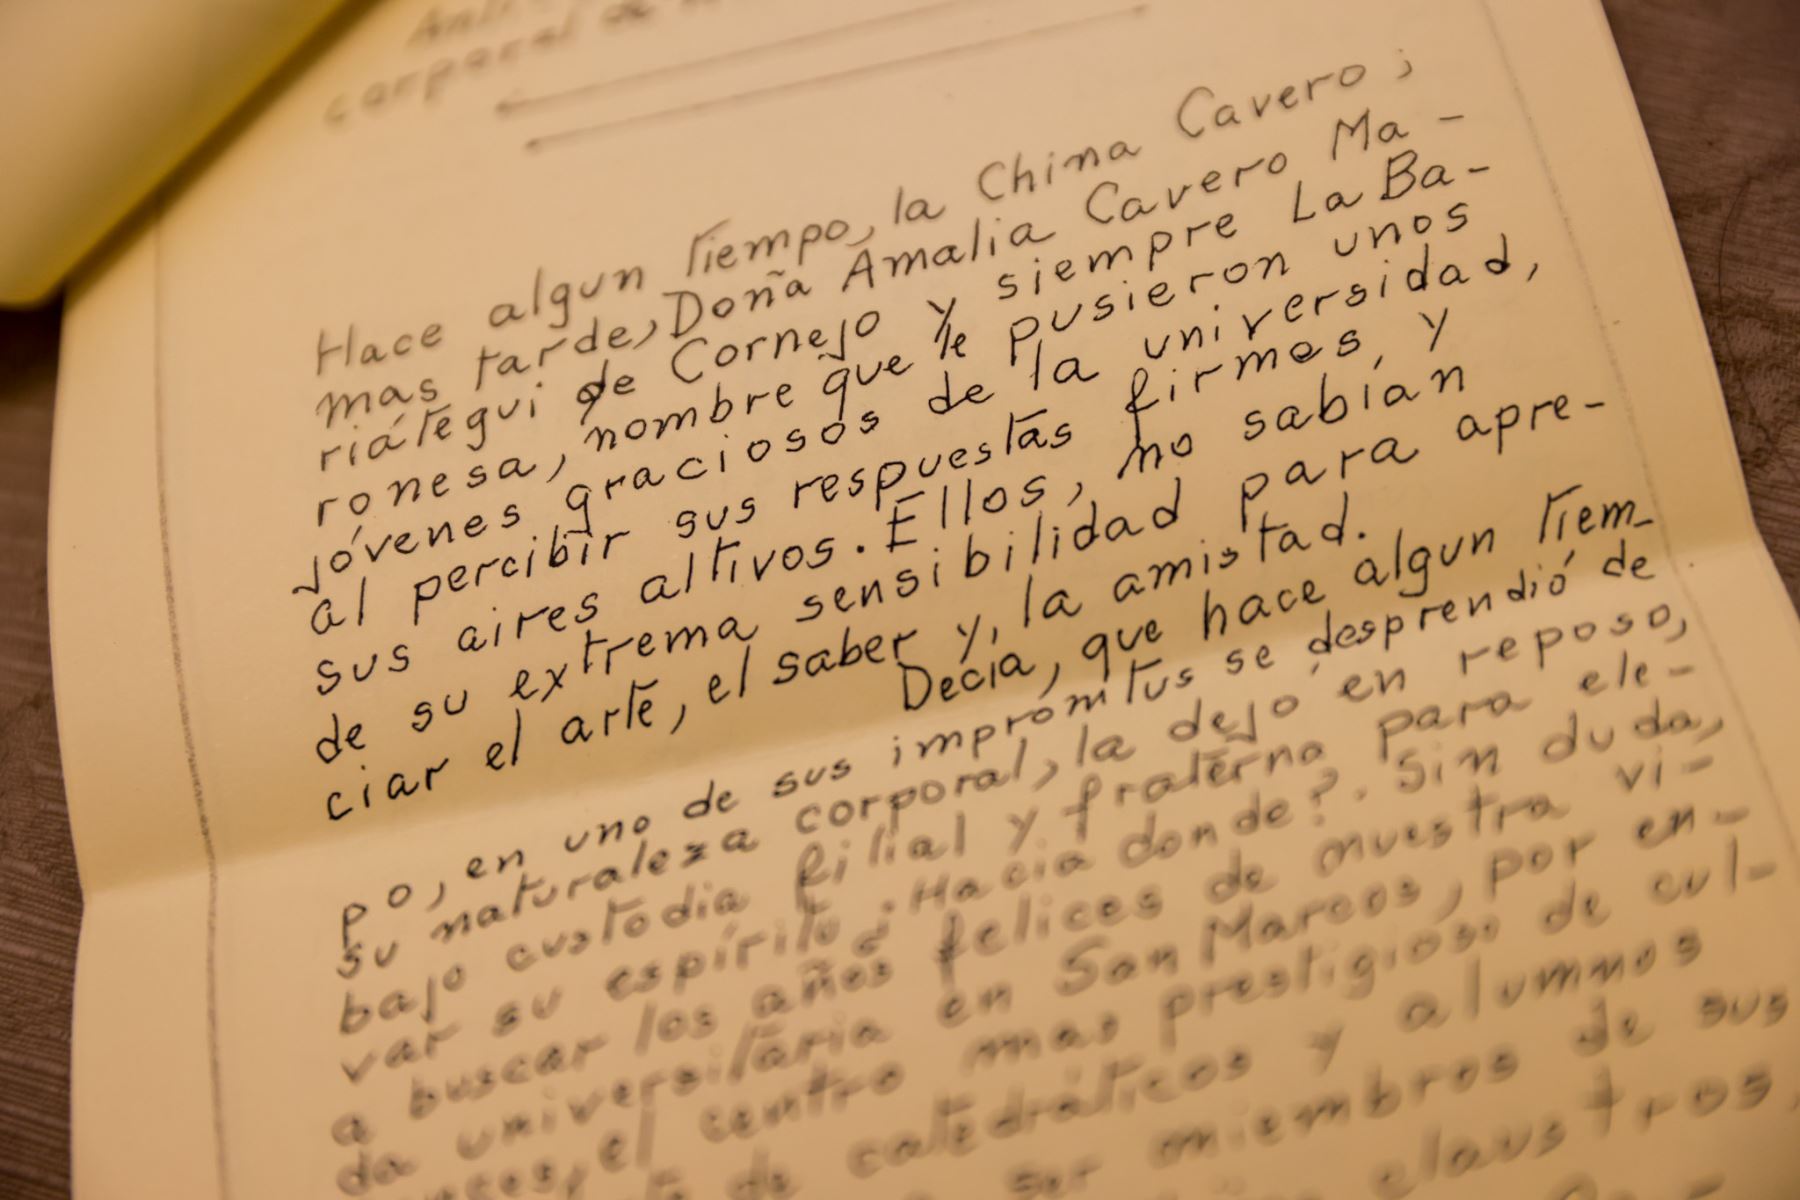 corporal de
Hace algun tiempo, la China Cavero,
mas tarde, Doña Amalia Cavero Ma-
riátegui de Cornejo y siempre La Ba-
ronesa, nombre que le pusieron unos
jóvenes graciosos de la universidad,
al percibir sus respuestas firmes, y
sus aires altivos. Ellos, no sabían
de su extrema sensibilidad para apre-
ciar el arte, el saber y, la amistad.
Decia, que hace algun tiem-
po, en uno de sus impromtus se desprendió de
su naturaleza corporal, la dejó en reposo,
bajo custodia filial y fraterna para ele-
var su espíritu. ¿Hacia donde?. Sin duda,
a buscar los años felices de nuestra vi-
da universitaria en San Marcos, por en-
, el centro mas prestigioso de cul-
de catedráticos y alumnos
ser miembros de sus
claustros,